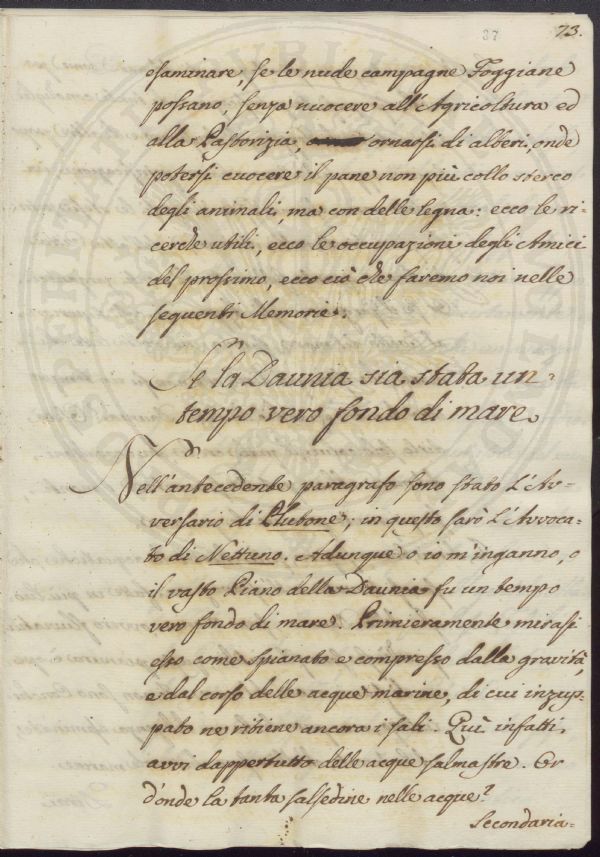 37
73.
esaminare, se le nude campagne Foggiane
possano, senza nuocere all'Agricoltura ed
alla Pastorizia, ornarsi di alberi, onde
potersi cuocere il pane non più collo sterco
degli animali, ma con delle legna: ecco le ri-
cerche utili, ecco le occupazioni degli Amici
del prossimo, ecco ciò che faremo noi nelle
seguenti Memorie.
Se la Daunia sia stata un-
tempo vero fondo di mare.
Nell'antecedente paragrafo sono stato l'Av-
versario di Plutone; in questo sarò l'Avvoca-
to di Nettuno. Adunque o io m'inganno, o
il vasto Piano della Daunia fu un tempo
vero fondo di mare. Primieramente mirasi
esso come spianato e compresso dalla gravità,
e dal corso delle acque marine, di cui inzup-
pato ne ritiene ancora i sali. Quì infatti
avvi dappertutto delle acque salmastre. Or
d'onde la tanta salsedine nelle acque?
Secondaria-